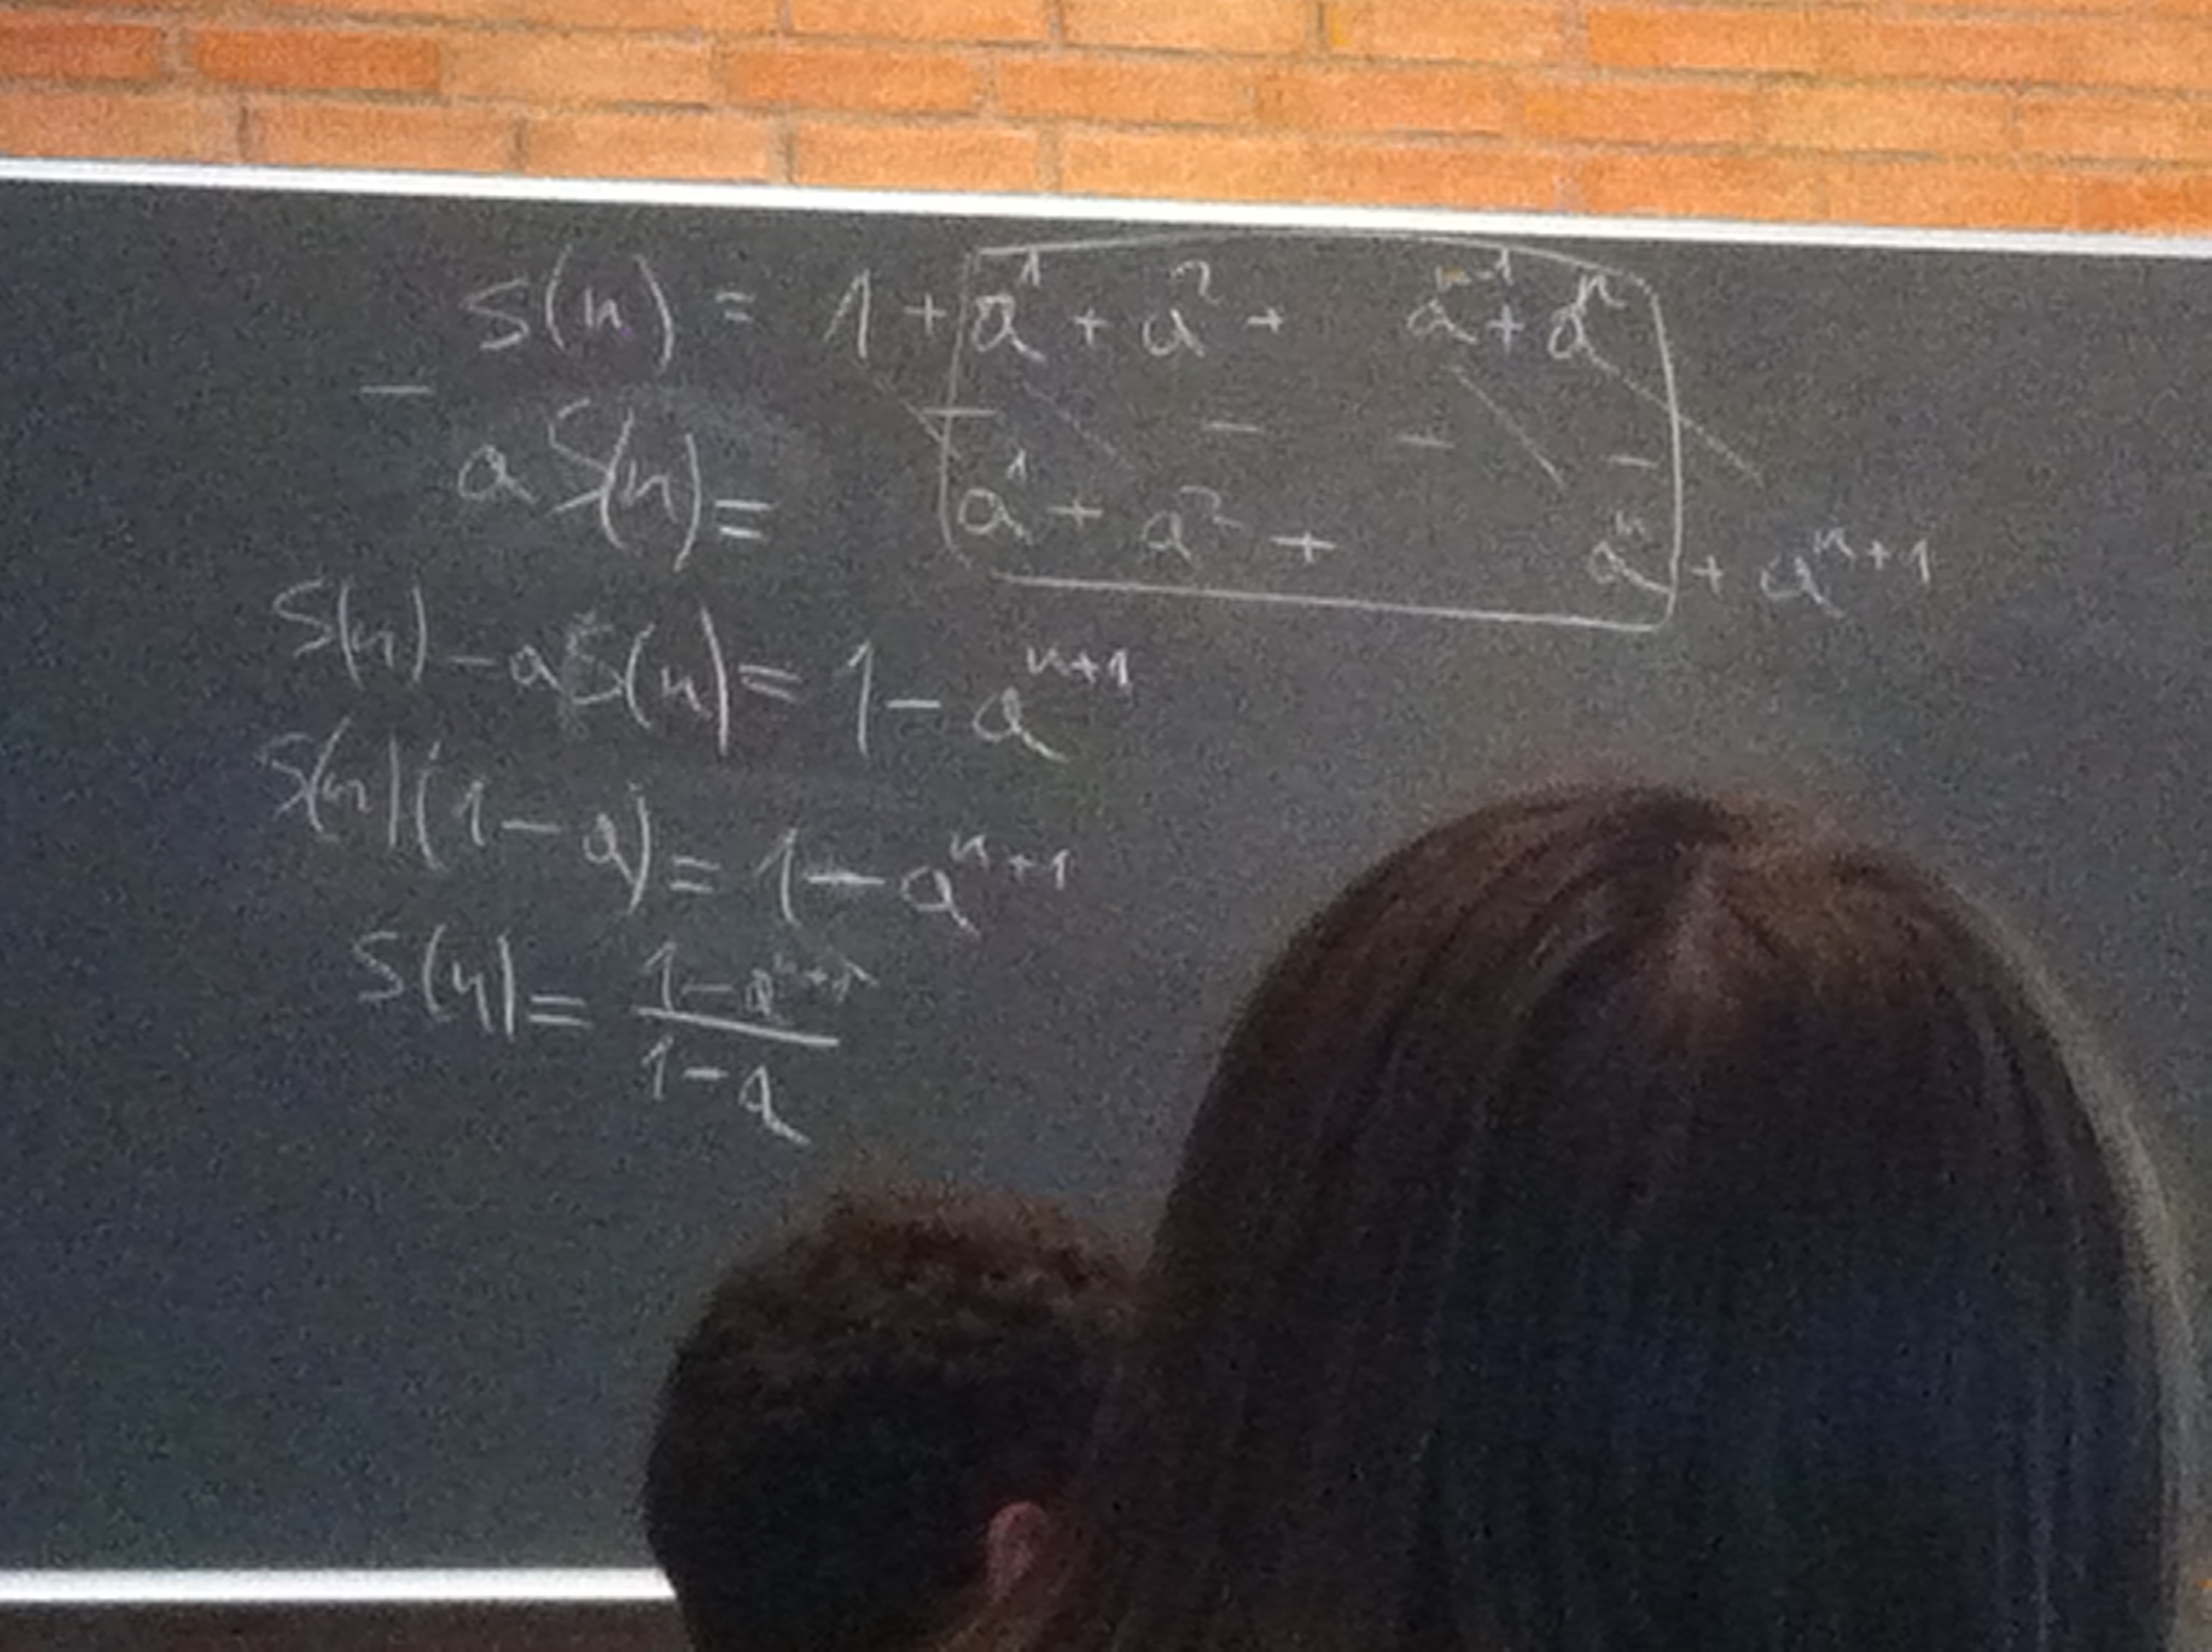 S(n) = 1 + a¹ + a² + aⁿ⁻¹ + aⁿ
− − − − −
aS(n) = a¹ + a² + aⁿ + aⁿ⁺¹
S(n) − aS(n) = 1 − aⁿ⁺¹
S(n)(1 − a) = 1 − aⁿ⁺¹
S(n) = (1 − aⁿ⁺¹) / (1 − a)